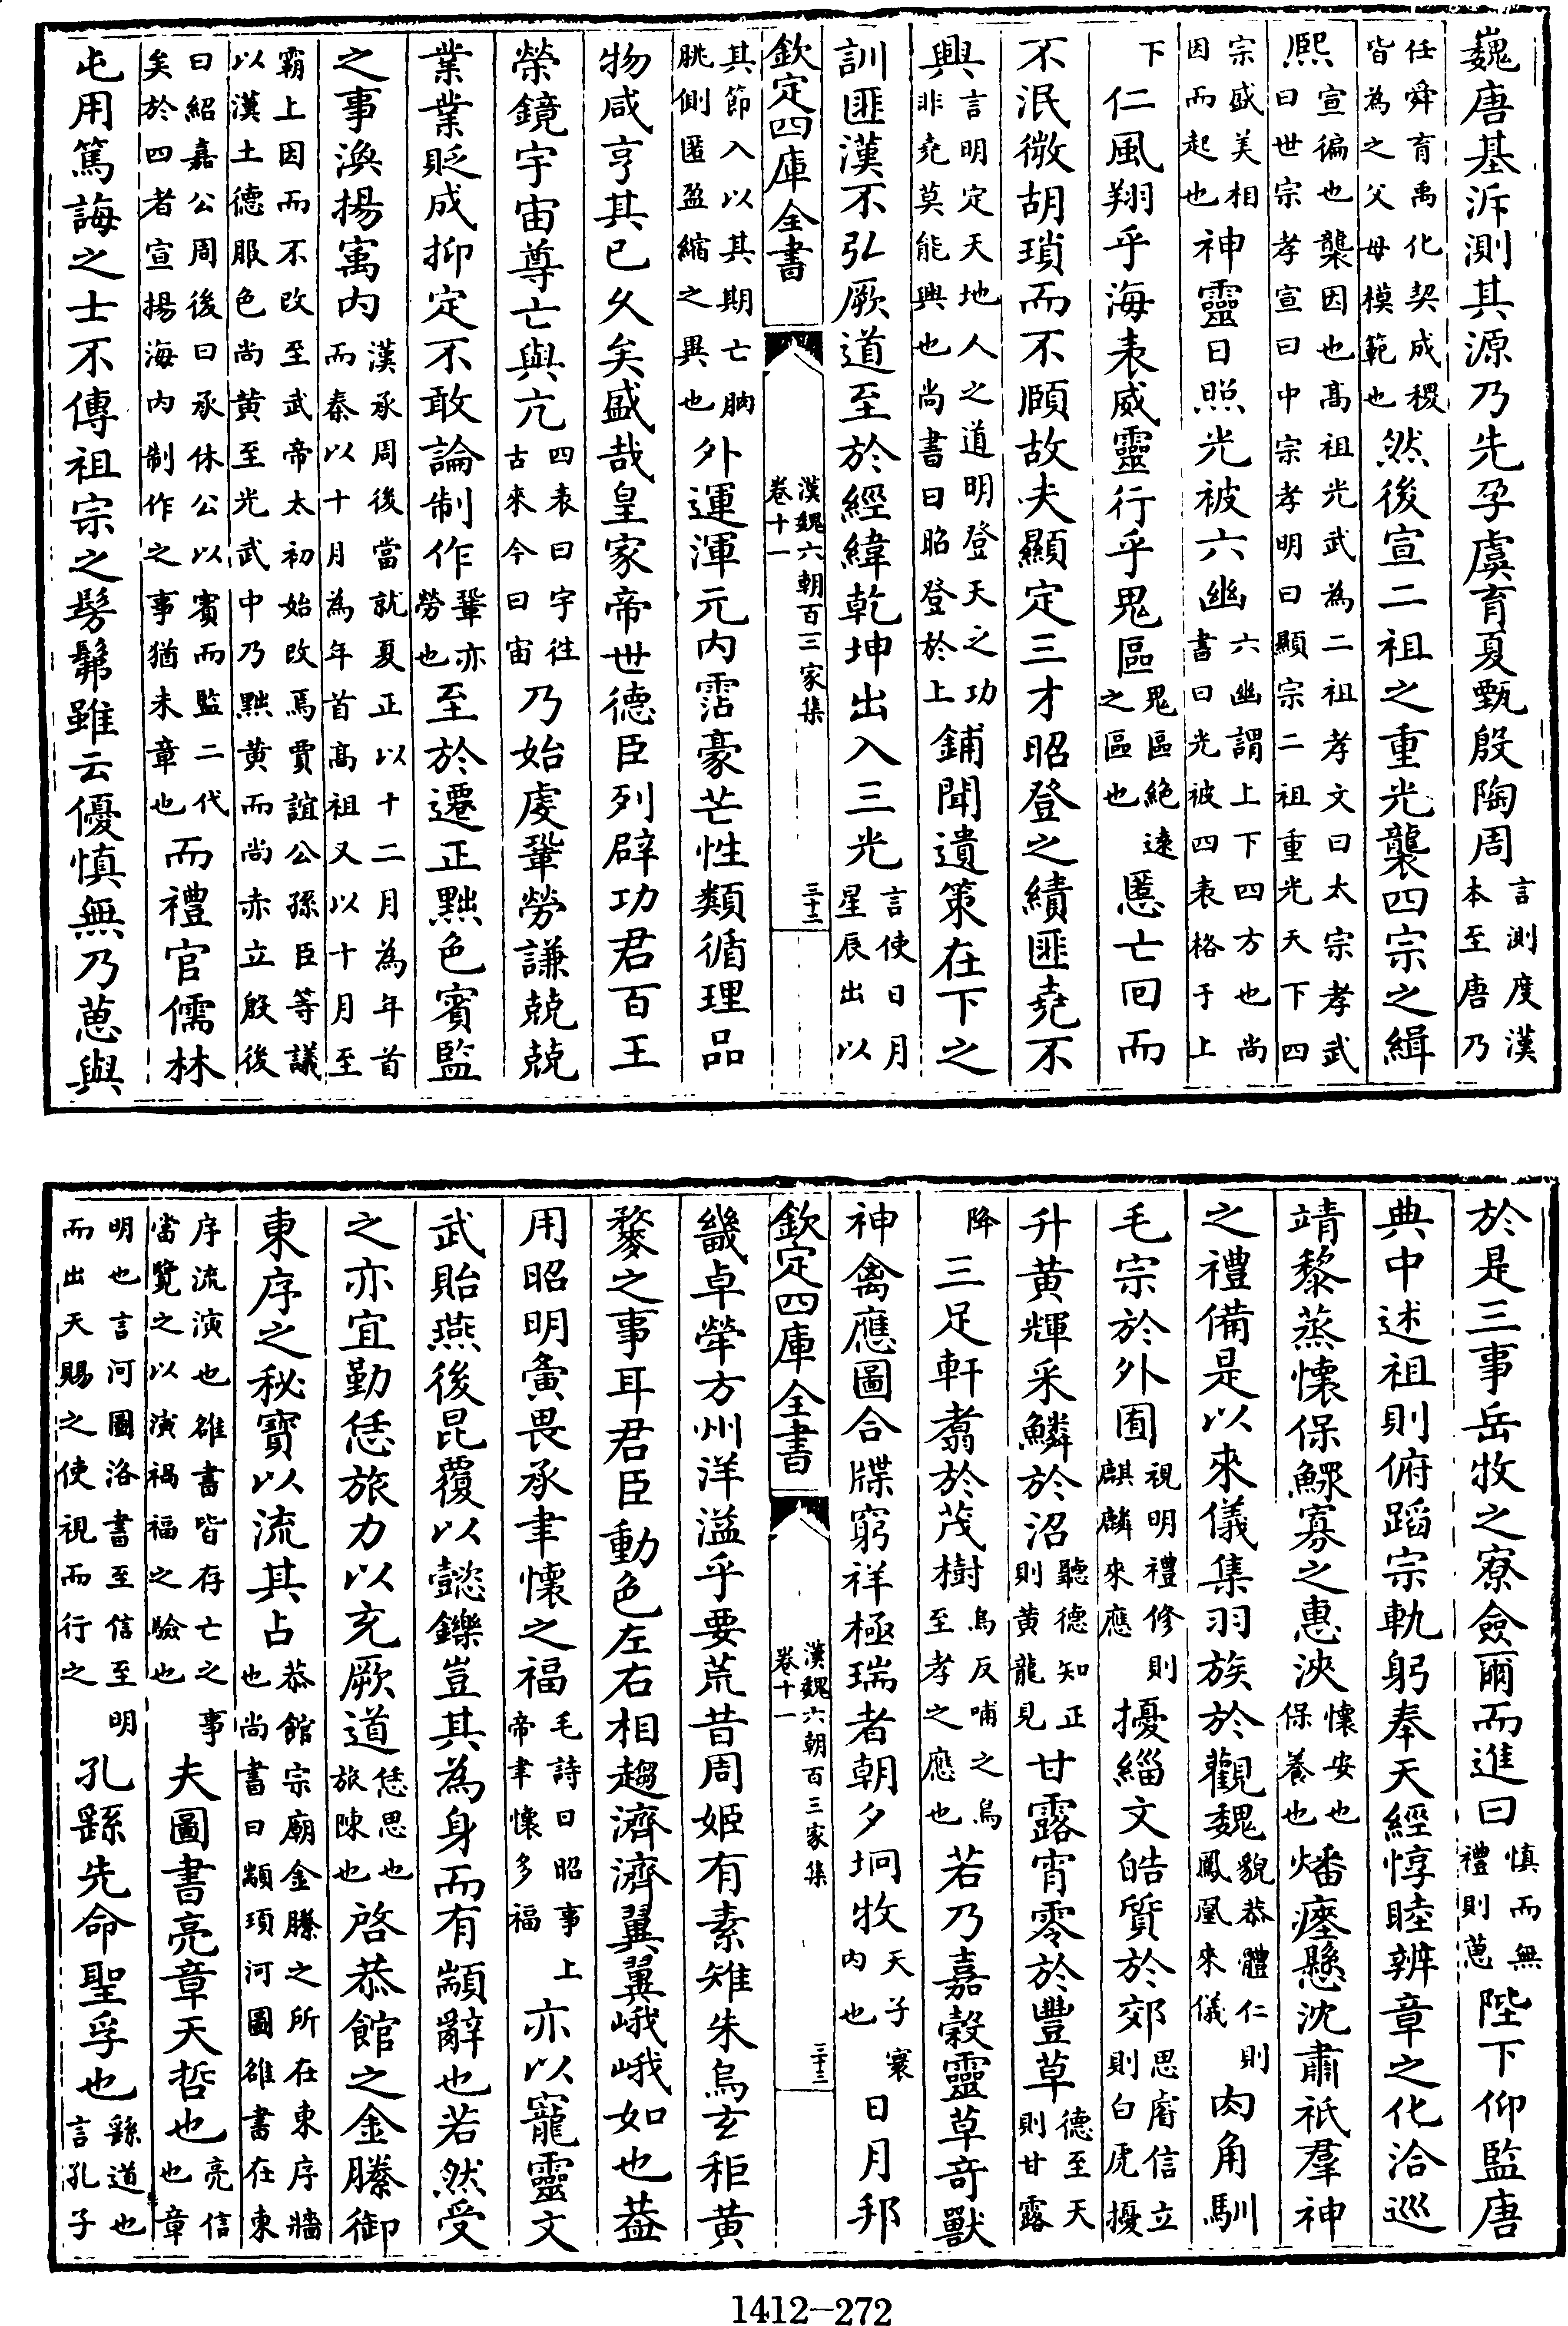 巍唐基泝測其源乃先孕虞育夏甄殷陶周言測度漢本至唐乃
任舜育禹化契成稷皆為之父母模範也然後宣二祖之重光襲四宗之緝
熙宣徧也襲因也髙祖光武為二祖孝文曰太宗孝武曰世宗孝宣曰中宗孝明曰顯宗二祖重光天下四
宗盛美相因而起也神靈日照光被六幽六幽謂上下四方也尚書曰光被四表格于上
下仁風翔乎海表威靈行乎鬼區鬼區絶逺之區也慝亡囘而
不泯微胡瑣而不頤故夫顯定三才昭登之績匪堯不
興言明定天地人之道明登天之功非堯莫能興也尚書曰昭登於上鋪聞遺策在下之
訓匪漢不弘厥道至於經緯乾坤出入三光言使日月星辰出以
欽定四庫全書 漢魏六朝百三家集卷十一 三十二
其節入以其期亡朒朓側匿盈縮之異也外運渾元内霑豪芒性類循理品
物咸亨其已乆矣盛哉皇家帝世德臣列辟功君百王
榮鏡宇宙尊亡與亢四表曰宇徃古來今曰宙乃始虔鞏勞謙兢兢
業業貶成抑定不敢論制作鞏亦勞也至於遷正黜色賓監
之事渙揚寓内漢承周後當就夏正以十二月為年首而秦以十月為年首髙祖又以十月至
霸上因而不改至武帝太初始改焉賈誼公孫臣等議以漢土德服色尚黄至光武中乃黜黄而尚赤立殷後
曰紹嘉公周後曰承休公以賓而監二代矣於四者宣揚海内制作之事猶未章也而禮官儒林
屯用篤誨之士不傳祖宗之髣髴雖云優慎無乃葸與
於是三事岳牧之寮僉爾而進曰慎而無禮則葸陛下仰監唐
典中述祖則俯蹈宗軌躬奉天經惇睦辨章之化洽巡
靖黎蒸懷保鰥寡之惠浹懷安也保養也燔瘞懸沈肅祇羣神
之禮備是以來儀集羽族於觀魏貌恭體仁則鳳凰來儀肉角馴
毛宗於外囿視明禮修則麒麟來應擾緇文皓質於郊思睿信立則白虎擾
升黄輝采鱗於沼聽德知正則黄龍見甘露宵零於豐草德至天則甘露
降三足軒翥於茂樹烏反哺之鳥至孝之應也若乃嘉穀靈草奇獸
神禽應圖合牒窮祥極瑞者朝夕坰牧天子寰内也日月邦
欽定四庫全書 漢魏六朝百三家集卷十一 三十三
畿卓犖方州洋溢乎要荒昔周姬有素雉朱烏玄秬黄
䅘之事耳君臣動色左右相趨濟濟翼翼峨峨如也葢
用昭明寅畏承聿懷之福毛詩曰昭事上帝聿懷多福亦以寵靈文
武貽燕後昆覆以懿鑠豈其為身而有顓辭也若然受
之亦宜勤恁旅力以充厥道恁思也旅陳也啓恭館之金縢御
東序之秘寶以流其占恭館宗廟金縢之所在東序牆也尚書曰顓頊河圖雒書在東
序流演也雒書皆存亡之事當覽之以演禍福之驗也夫圖書亮章天哲也亮信也章
明也言河圖洛書至信至明而出天賜之使視而行之孔繇先命聖孚也繇道也言孔子
1412—272